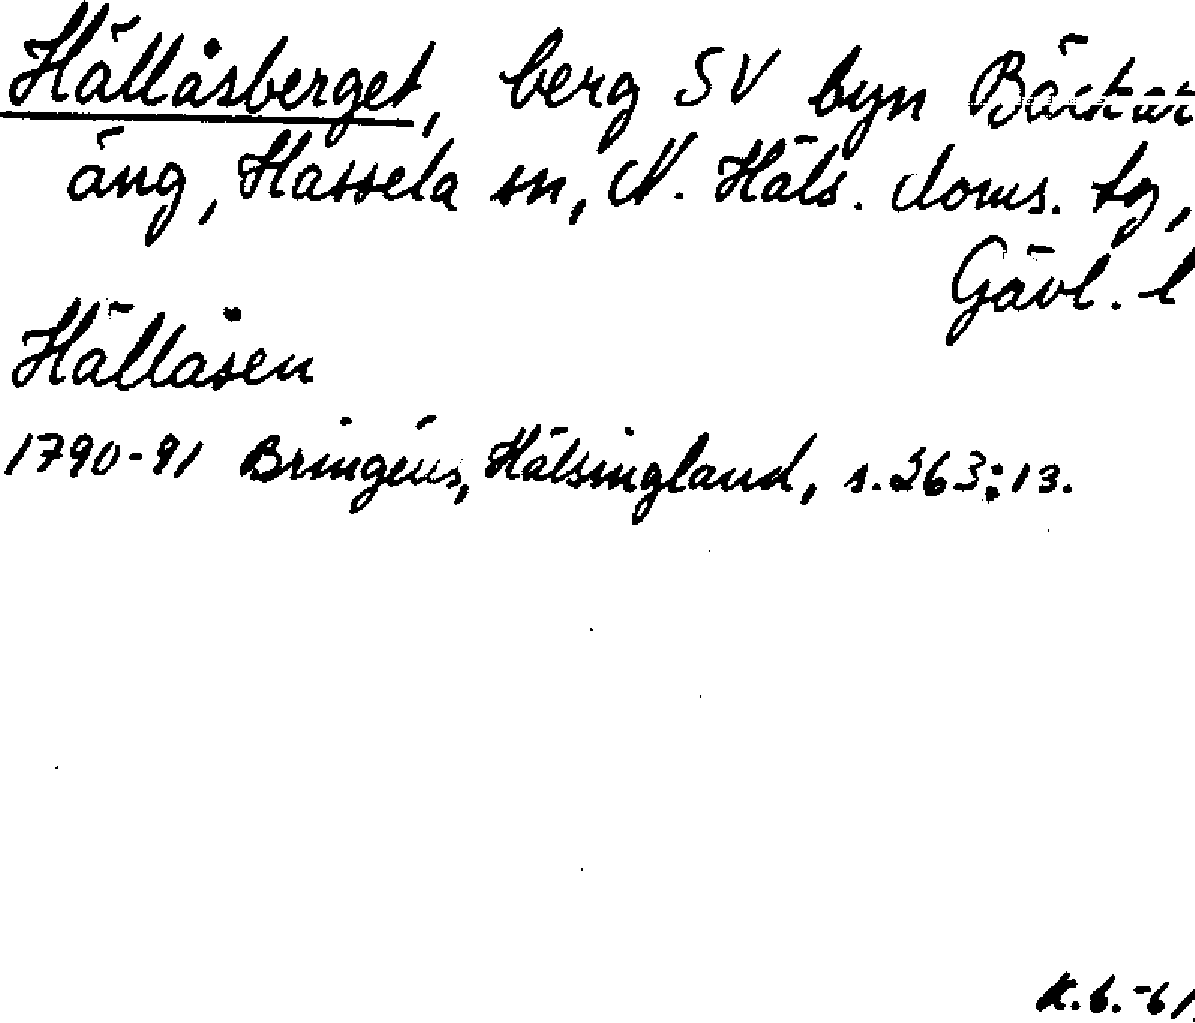 Hällåsberget, berg SV byn Bäckar
äng, Hassela sn, N. Häls. doms. tg,
Gävl. l
Hällåsen
1790-91 Bringéus, Hälsingland, s. 263:13.
K.B.-61.